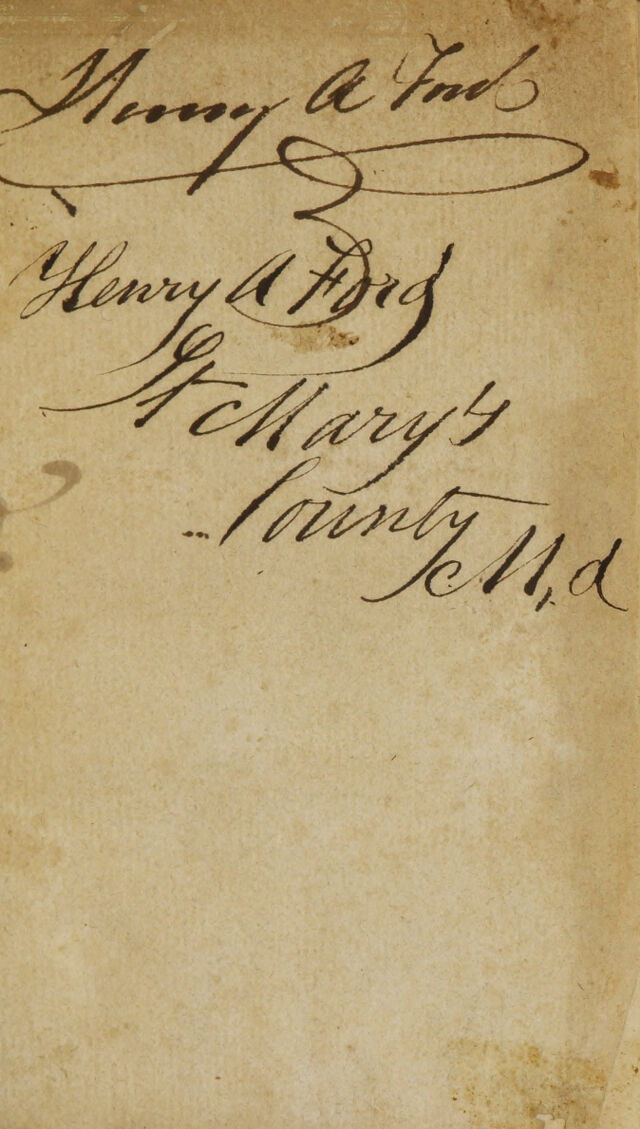 Henry A Ford
Henry A Ford
St Mary's
County
M,d